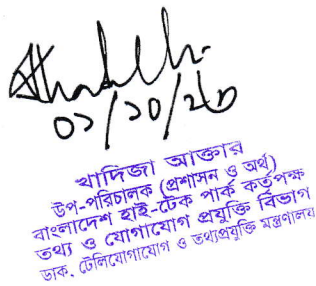 ০১/১০/২০
খাদিজা আক্তার
উপ-পরিচালক (প্রশাসন ও অর্থ)
বাংলাদেশ হাই-টেক পার্ক কর্তৃপক্ষ
তথ্য ও যোগাযোগ প্রযুক্তি বিভাগ
ডাক, টেলিযোগাযোগ ও তথ্যপ্রযুক্তি মন্ত্রণালয়